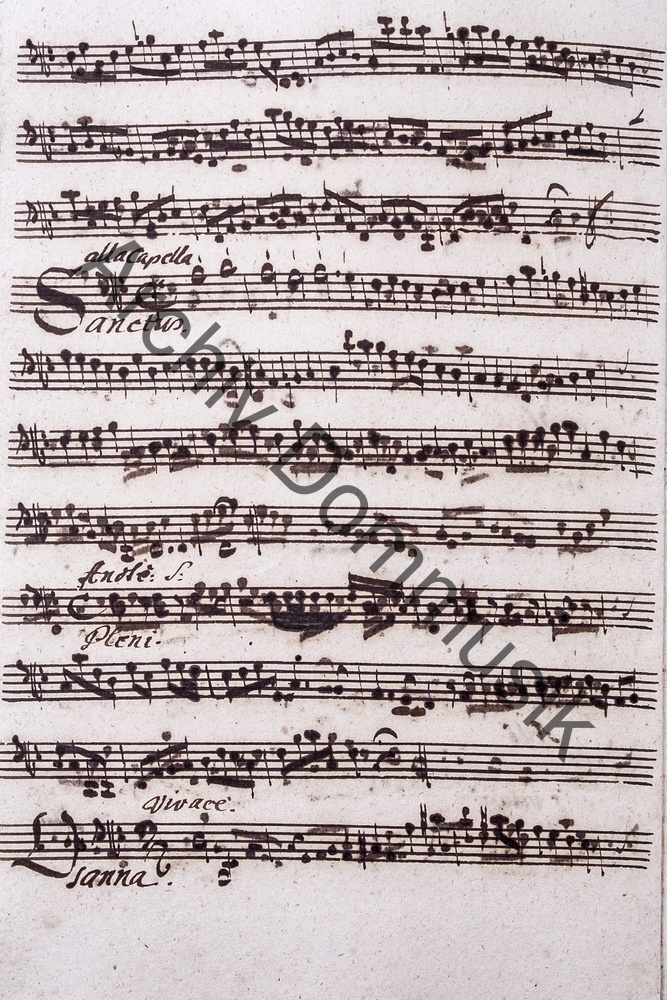 alla Capella
Sanctus.
Andte: S:
Pleni.
Vivace.
Osanna.
Archiv Dommusik